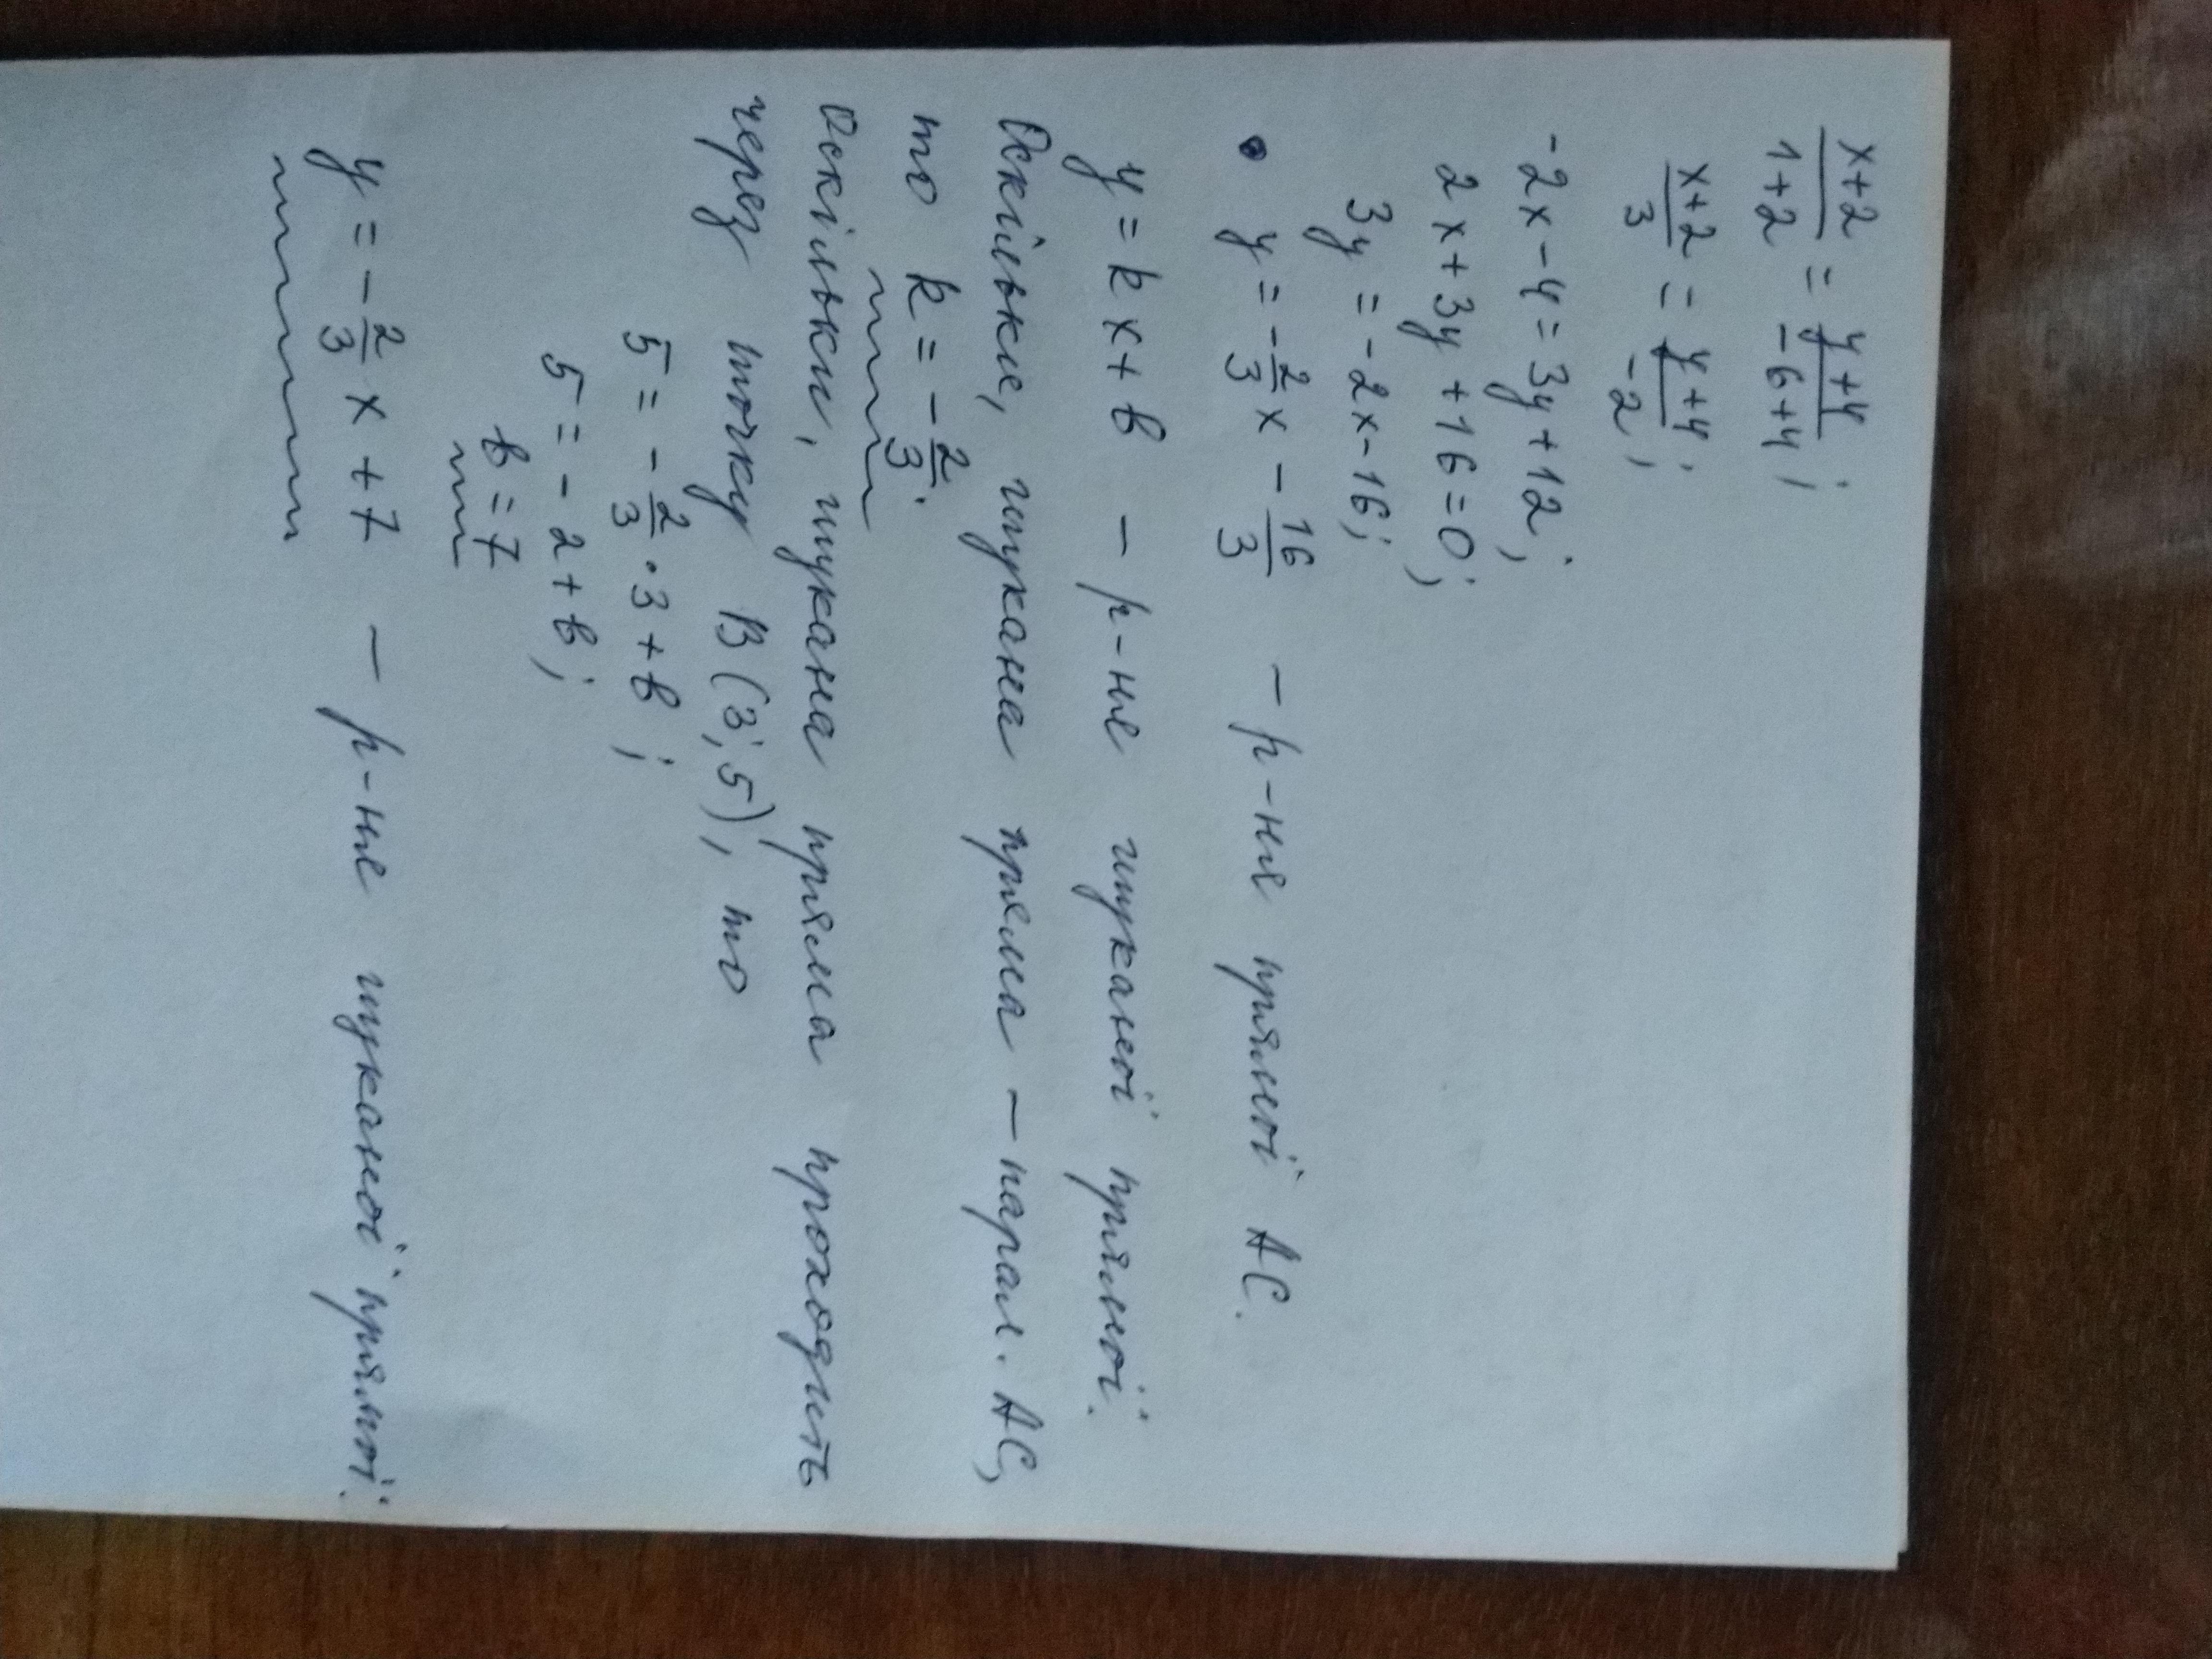 x+2/1+2 = y+4/-6+4;
x+2/3 = y+4/-2;
-2x-4=3y+12;
2x+3y+16=0;
3y=-2x-16;
• y=-2/3x-16/3 - р-ня прямої АС.
y=kx+b - р-ня шуканої прямої.
Оскільки, шукана пряма - парал. АС,
то k=-2/3.
Оскільки, шукана пряма проходить
через точку В(3;5), то
5=-2/3·3+b;
5=-2+b;
b=7
y=-2/3x+7 - р-ня шуканої прямої.